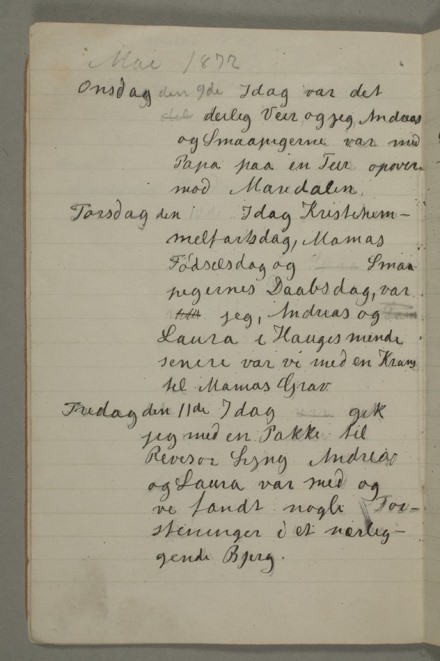 Mai 1877
Onsdag den 9de Idag var det
deilig Veir og jeg, Andreas
og Smaapigerne var med
Papa paa en Tur opover
mod Maridalen.
Torsdag den Idag Kristihem-
melfartsdag, Mamas
Fødselsdag og Smaa
pigernes Daabsdag, var
jeg, Andreas og
Laura i Hauges minde
senere var vi med en Krans
til Mamas Grav
Fredag den 11de Idag gik
jeg med en Pakke til
Revesor Andreas
og Laura var med og
vi fandt nogle For-
steninger i et nærlig-
gende Bjerg.